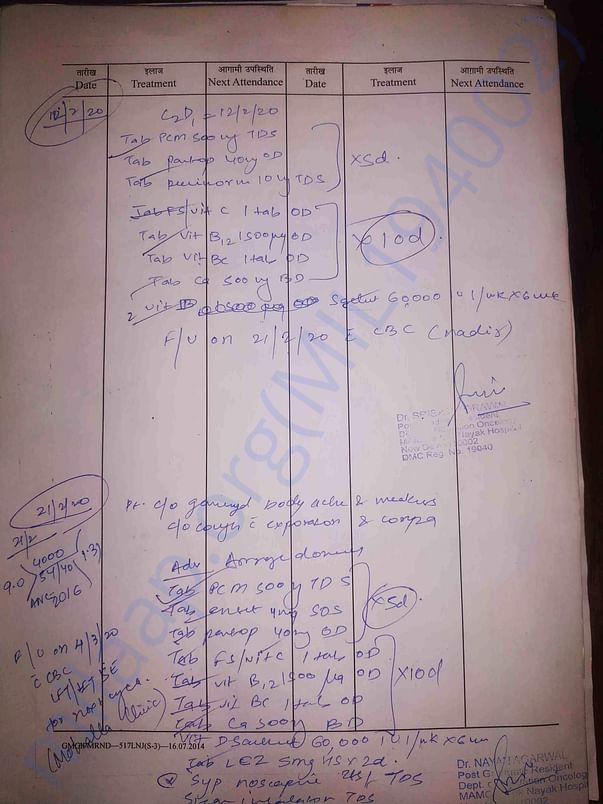 तारीख इलाज आगामी उपस्थिति तारीख इलाज आगामी उपस्थिति
Date Treatment Next Attendance Date Treatment Next Attendance
12/2/20 C2D1 = 12/2/20
Tab PCM 500 mg TDS
Tab pantop 40 mg OD
Tab perinorm 10 mg TDS
x5d.
Tab FS/vit C 1 tab OD
Tab Vit B12 1500 µg OD
Tab Vit BC 1 tab OD
Tab Ca 500 mg BD
x 10d.
Vit D Sachet 60,000 IU/wk x 6 wk
F/U on 21/2/20 c CBC (nadir)
Dr.
Resident
Oncology
Nayak Hospital
New Delhi 110002
DMC Reg. No. 19040
21/2/20
Pt. c/o generalised body ache & weakness
c/o cough c expectoration & coryza
21/2
9.0 4000 1.39
54/40
ANC 2016
Adv Arrange donors
Tab PCM 500 mg TDS
Tab emset 4mg SOS
Tab pantop 40mg OD
x5d
Tab FS/vit C 1 tab OD
Tab vit B12 1500 µg OD
Tab vit BC 1 tab OD
Tab Ca 500 mg BD
x10d
Vit D Sachet 60,000 IU/wk x 6 wk
Tab LEZ 5mg HS x 2d.
Syp noscapine 2tsf TDS
Steam inhalation TDS
F/U on 4/3/20
c CBC
LFT/KFT SE
for next cycle.
(Mohalla Clinic)
GMGIPMRND—517LNJ(S-3)—16.07.2014
Dr. NAYAN AGARWAL
Post Graduate Resident
Dept. of Oncology
MAMC Nayak Hospital
milaap.org(MIL1940002)